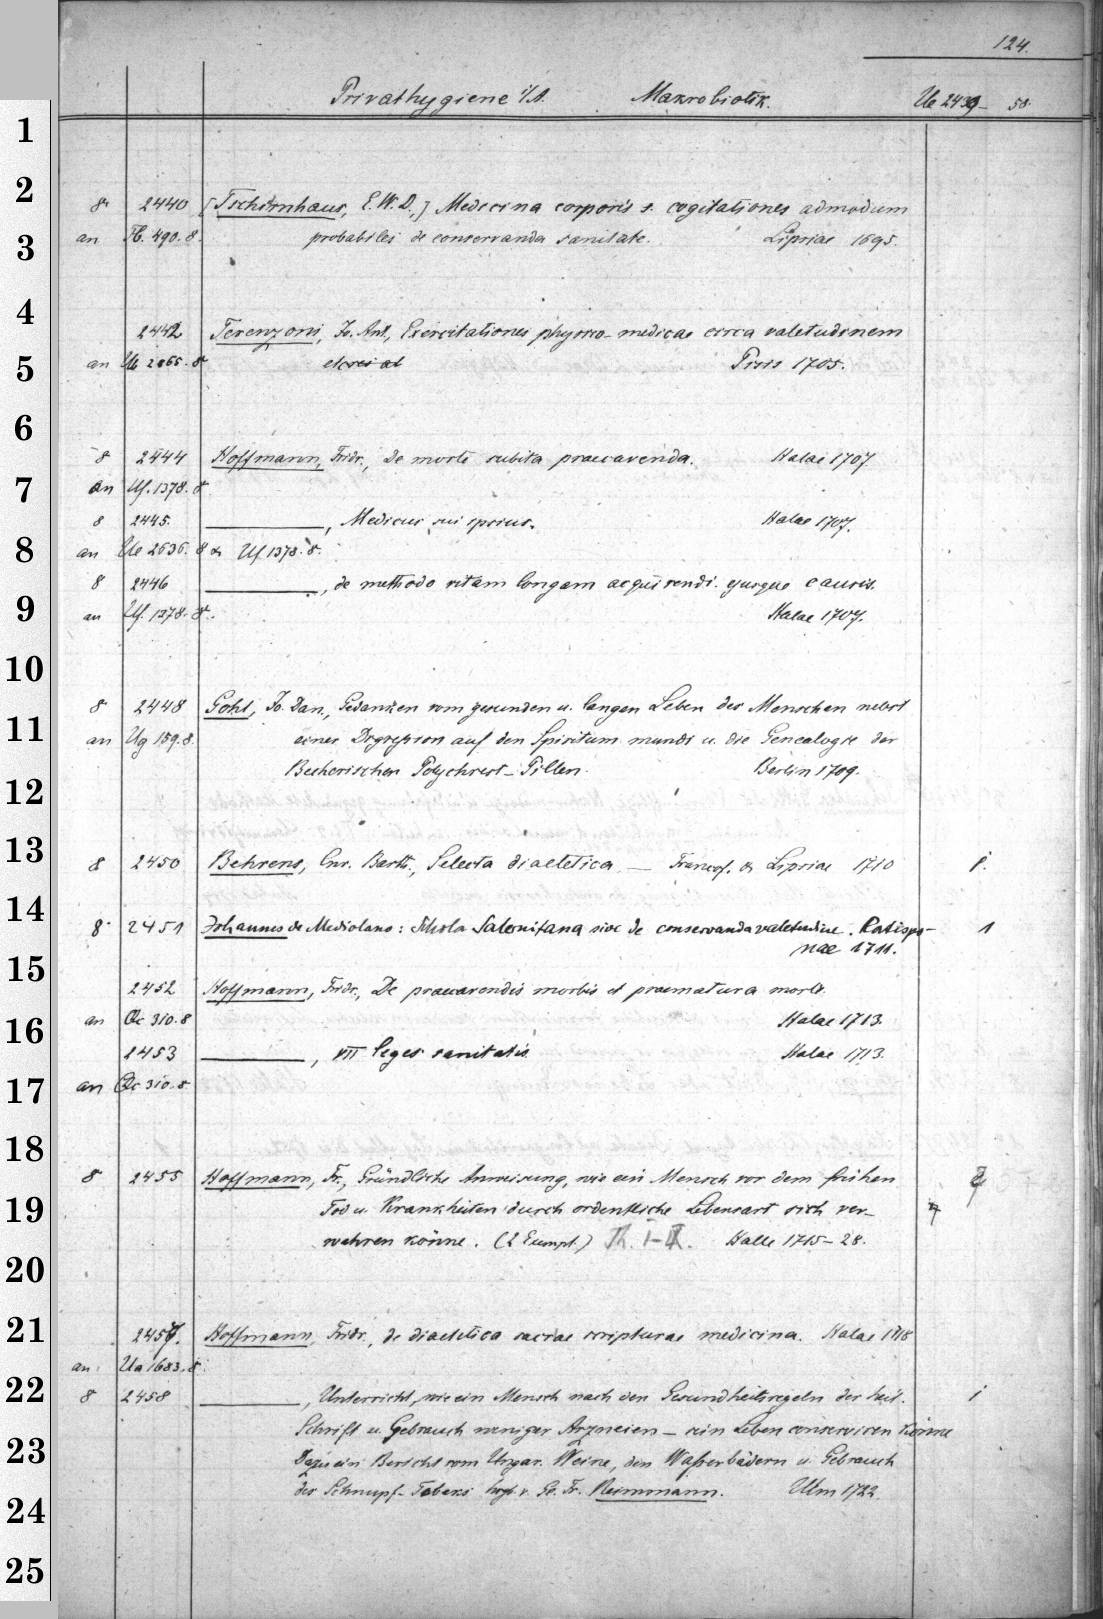 124.
Privathygiene i/A. Makrobiotik. Ue 2439-58.
1
2
8° 2440 [Tschirnhaus, E.W.D.,] Medicina corporis s. cogitationes admodum
3
an 490.8. probabiles de conservanda sanitate. Lipsiae 1695.
4
2442 Terenzoni, Jo. Ant., Exercitationes physico-medicae circa valetudinem
5
an Ue 2865.8° Pisis 1705.
6
8 2444 Hoffmann, Fridr., de morte subita praecavenda. Halae 1707
7
an Uf. 1378.8°
8 2445. ———, Medicus sui ipsius. Halae 1707.
8
an Ue 2636.8 & Uf 1378.8.
8 2446 ———, de methodo vitam longam acquirendi ejusque causis.
9
an Uf. 1378.8°. Halae 1707.
10
8° 2448 Gohl, Jo. Dan., Gedanken vom gesunden u. langen Leben der Menschen nebst
11
an Ug 159.8. einer Digression auf den Spiritum mundi u. die Genealogie der
Becherischen Polychrest-Pillen. Berlin 1709.
12
13
8 2450 Behrens, Cnr. Barth., Selecta diaetetica — Francof. & Lipsiae 1710 1.
14
8° 2451 Johannes de Mediolano: Schola Salernitana sive de conservanda valetudine. Ratispo-
1
nae 1711.
15
2452 Hoffmann, Fridr., De praecavendis morbis et praematura morte.
16
an 310.8 Halae 1713.
2453 ———, VII leges sanitatis Halae 1713.
17
an 310.8
18
8 2455 Hoffmann, Fr., Gründliche Anweisung, wie ein Mensch vor dem frühen
19
Tod u. Krankheiten durch ordentliche Lebensart sich ver-
wahren könne. (2 Exempl.) Th. Halle 1715-28.
20
21
2457. Hoffmann, Fridr., de diaetetica sacrae scripturae medicina. Halae 1718
an Ua 1683.8.
22
8 2458 ———, Unterricht, wie ein Mensch nach den Gesundheitsregeln der heil.
1
Schrift u. Gebrauch weniger Arzneien - sein Leben conserviren könne
23
Dazu ein Bericht vom Ungar. Weine, den Waßerbädern u. Gebrauch
des Schnupf-Tabaks hrsg. v. Ge. Fr. Reimmann. Ulm 1722.
24
25